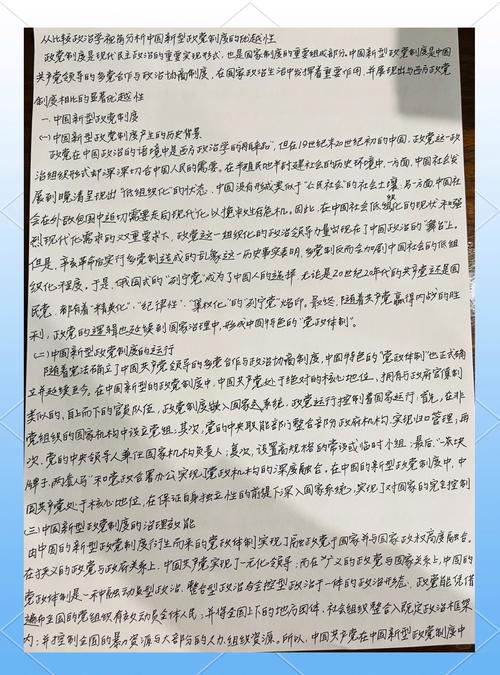 从比较政治学视角分析中国新型政党制度的优越性
政党制度是现代民主政治的重要实现形式,也是国家制度的重要组成部分。中国新型政党制度是中国
共产党领导的多党合作与政治协商制度,在国家政治生活中发挥着重要作用,并展现出与西方政党
制度相比的显著优越性
一.中国新型政党制度
(一)中国新型政党制度产生的历史背景
政党在中国政治的语境中是西方政治学的"舶来品",但在19世纪末20世纪初的中国,政党这一政
治组织形式却深深切合中国人民的需要。在半殖民地半封建社会的历史环境中,一方面,中国社会发
展到晚清呈现出"低组织化"的状态,中国没有形成类似于"公民社会"的社会土壤,另一方面,中国社
会在外敌包围中迫切需要走向现代化以摆脱生存危机。因此,在中国社会低组织化的现状和强
烈现代化需求的双重要求下,政党这一组织化的政治领导力量出现在了中国政治的"舞台"上。
但是,辛亥革命后实行多党制造成的乱象这一历史事实表明,多党制反而会加剧中国社会的低组
织化程度。于是,"俄国式的"列宁党"成为了中国人的选择,无论是20世纪20年代的共产党还是国
民党,都有着"精英化"、"纪律性"、"集权化"的"列宁党"烙印。最终,随着共产党赢得内战的胜
利,政党的逻辑也延续到国家治理中,形成中国特色的"党政体制"。
(二)中国新型政党制度的运行
随着宪法确立了中国共产党领导的多党合作与政治协商制度,中国特色的"党政体制"也正式确
立并延续至今。在中国新型的政党制度中,中国共产党处于绝对的核心地位,拥有与政府官僚制
类似的、自上而下的官员队伍,政党制度嵌入国家系统,政党运行控制着国家运行:首先,在非
党组织的国家机构中设立党组;其次,党的中央职能部门整合部分政府机构,实现归口管理;再
次,党的中央领导人兼任国家机构负责人;其次,设置高规格的常设或临时小组;最后,"一块
牌子,两套马"和党政合署办公实现了党政机构的深度融合。在中国的新型政党制度中,中
国共产党处于核心地位,在保证自身独立性的前提下深入国家系统,实现了对国家的完全控制
(三)中国新型政党制度的治理效能
由中国的新型政党制度衍生而来的党政体制实现了融政党于国家并与国家政权高度融合。
在狭义的政党与政府关系上,中国共产党实现了一元化领导;而在广义的政党与国家关系上,中国的
党政体制是一种融动员型政治、整合型政治与全控型政治于一体的政治形态。政党能凭借
遍布全国的党组织有效动员全体人民;并将全国上下的地方团体、社会组织整合入既定政治框架
内;并控制全国的暴力资源与大部分的人力、组织资源。所以,中国共产党在中国新型政党制度中